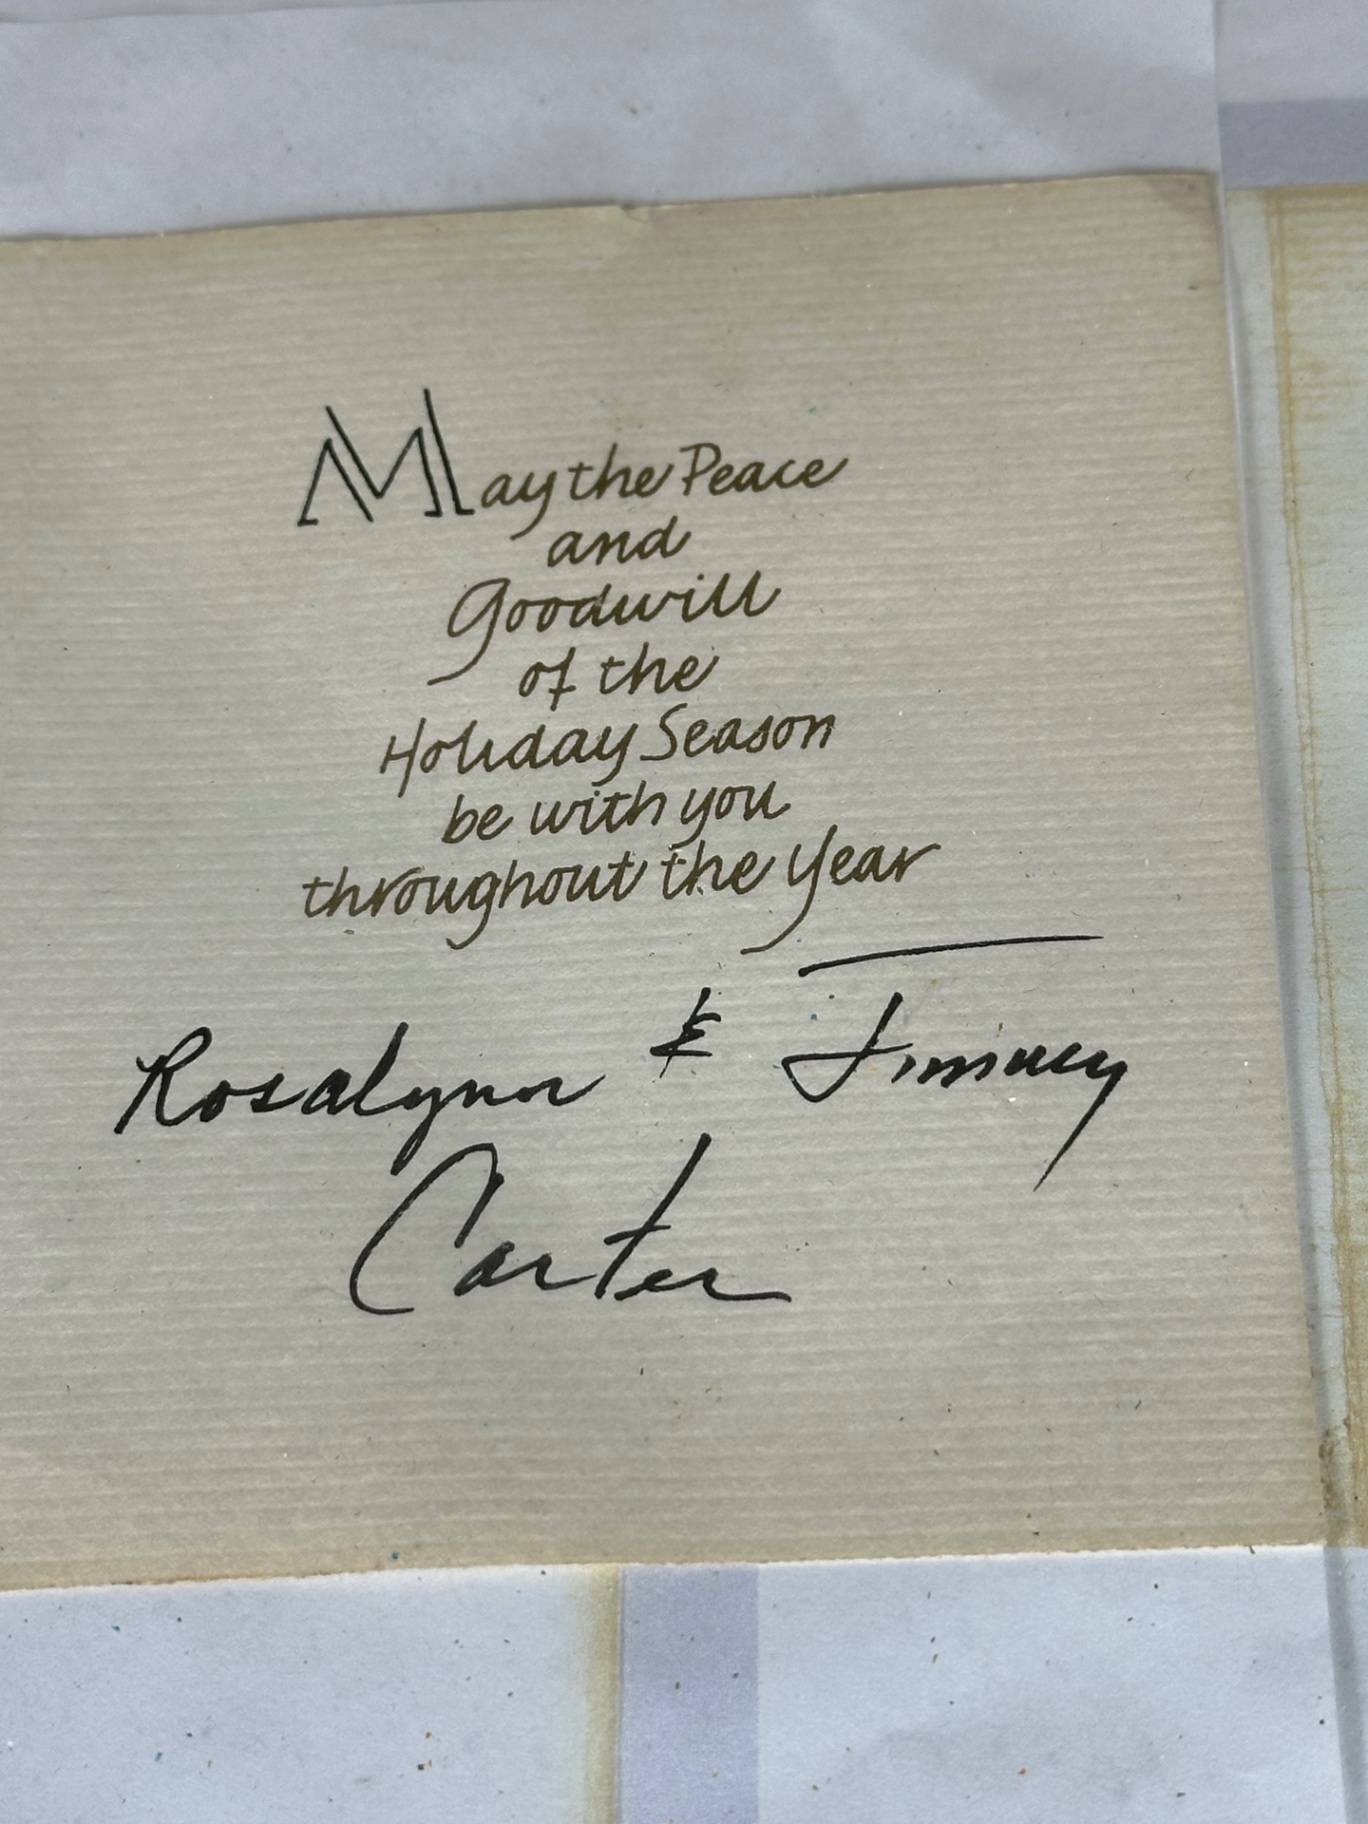 May the Peace
and
Goodwill
of the
Holiday Season
be with you
throughout the Year
Rosalynn & Jimmy
Carter